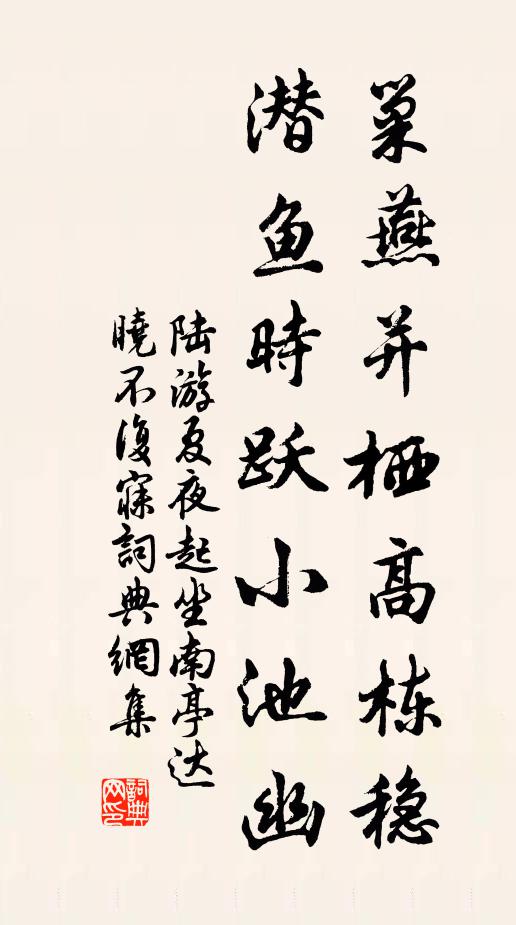 巢燕并栖高栋稳
潜鱼時跃小池幽
陆游夏夜起坐南亭达
曉不復寐詞典網集
詞典
网印